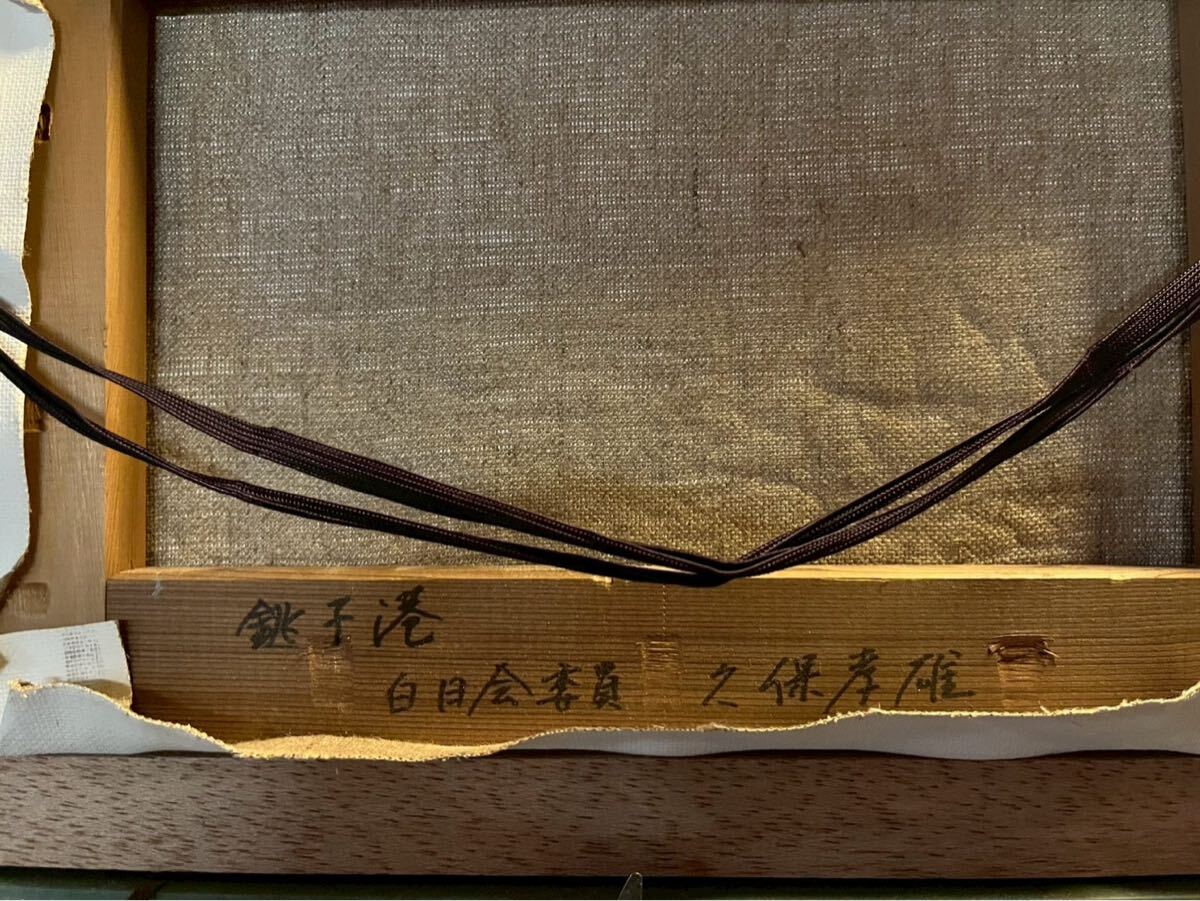 銚子港
白日会委員 久保孝雄